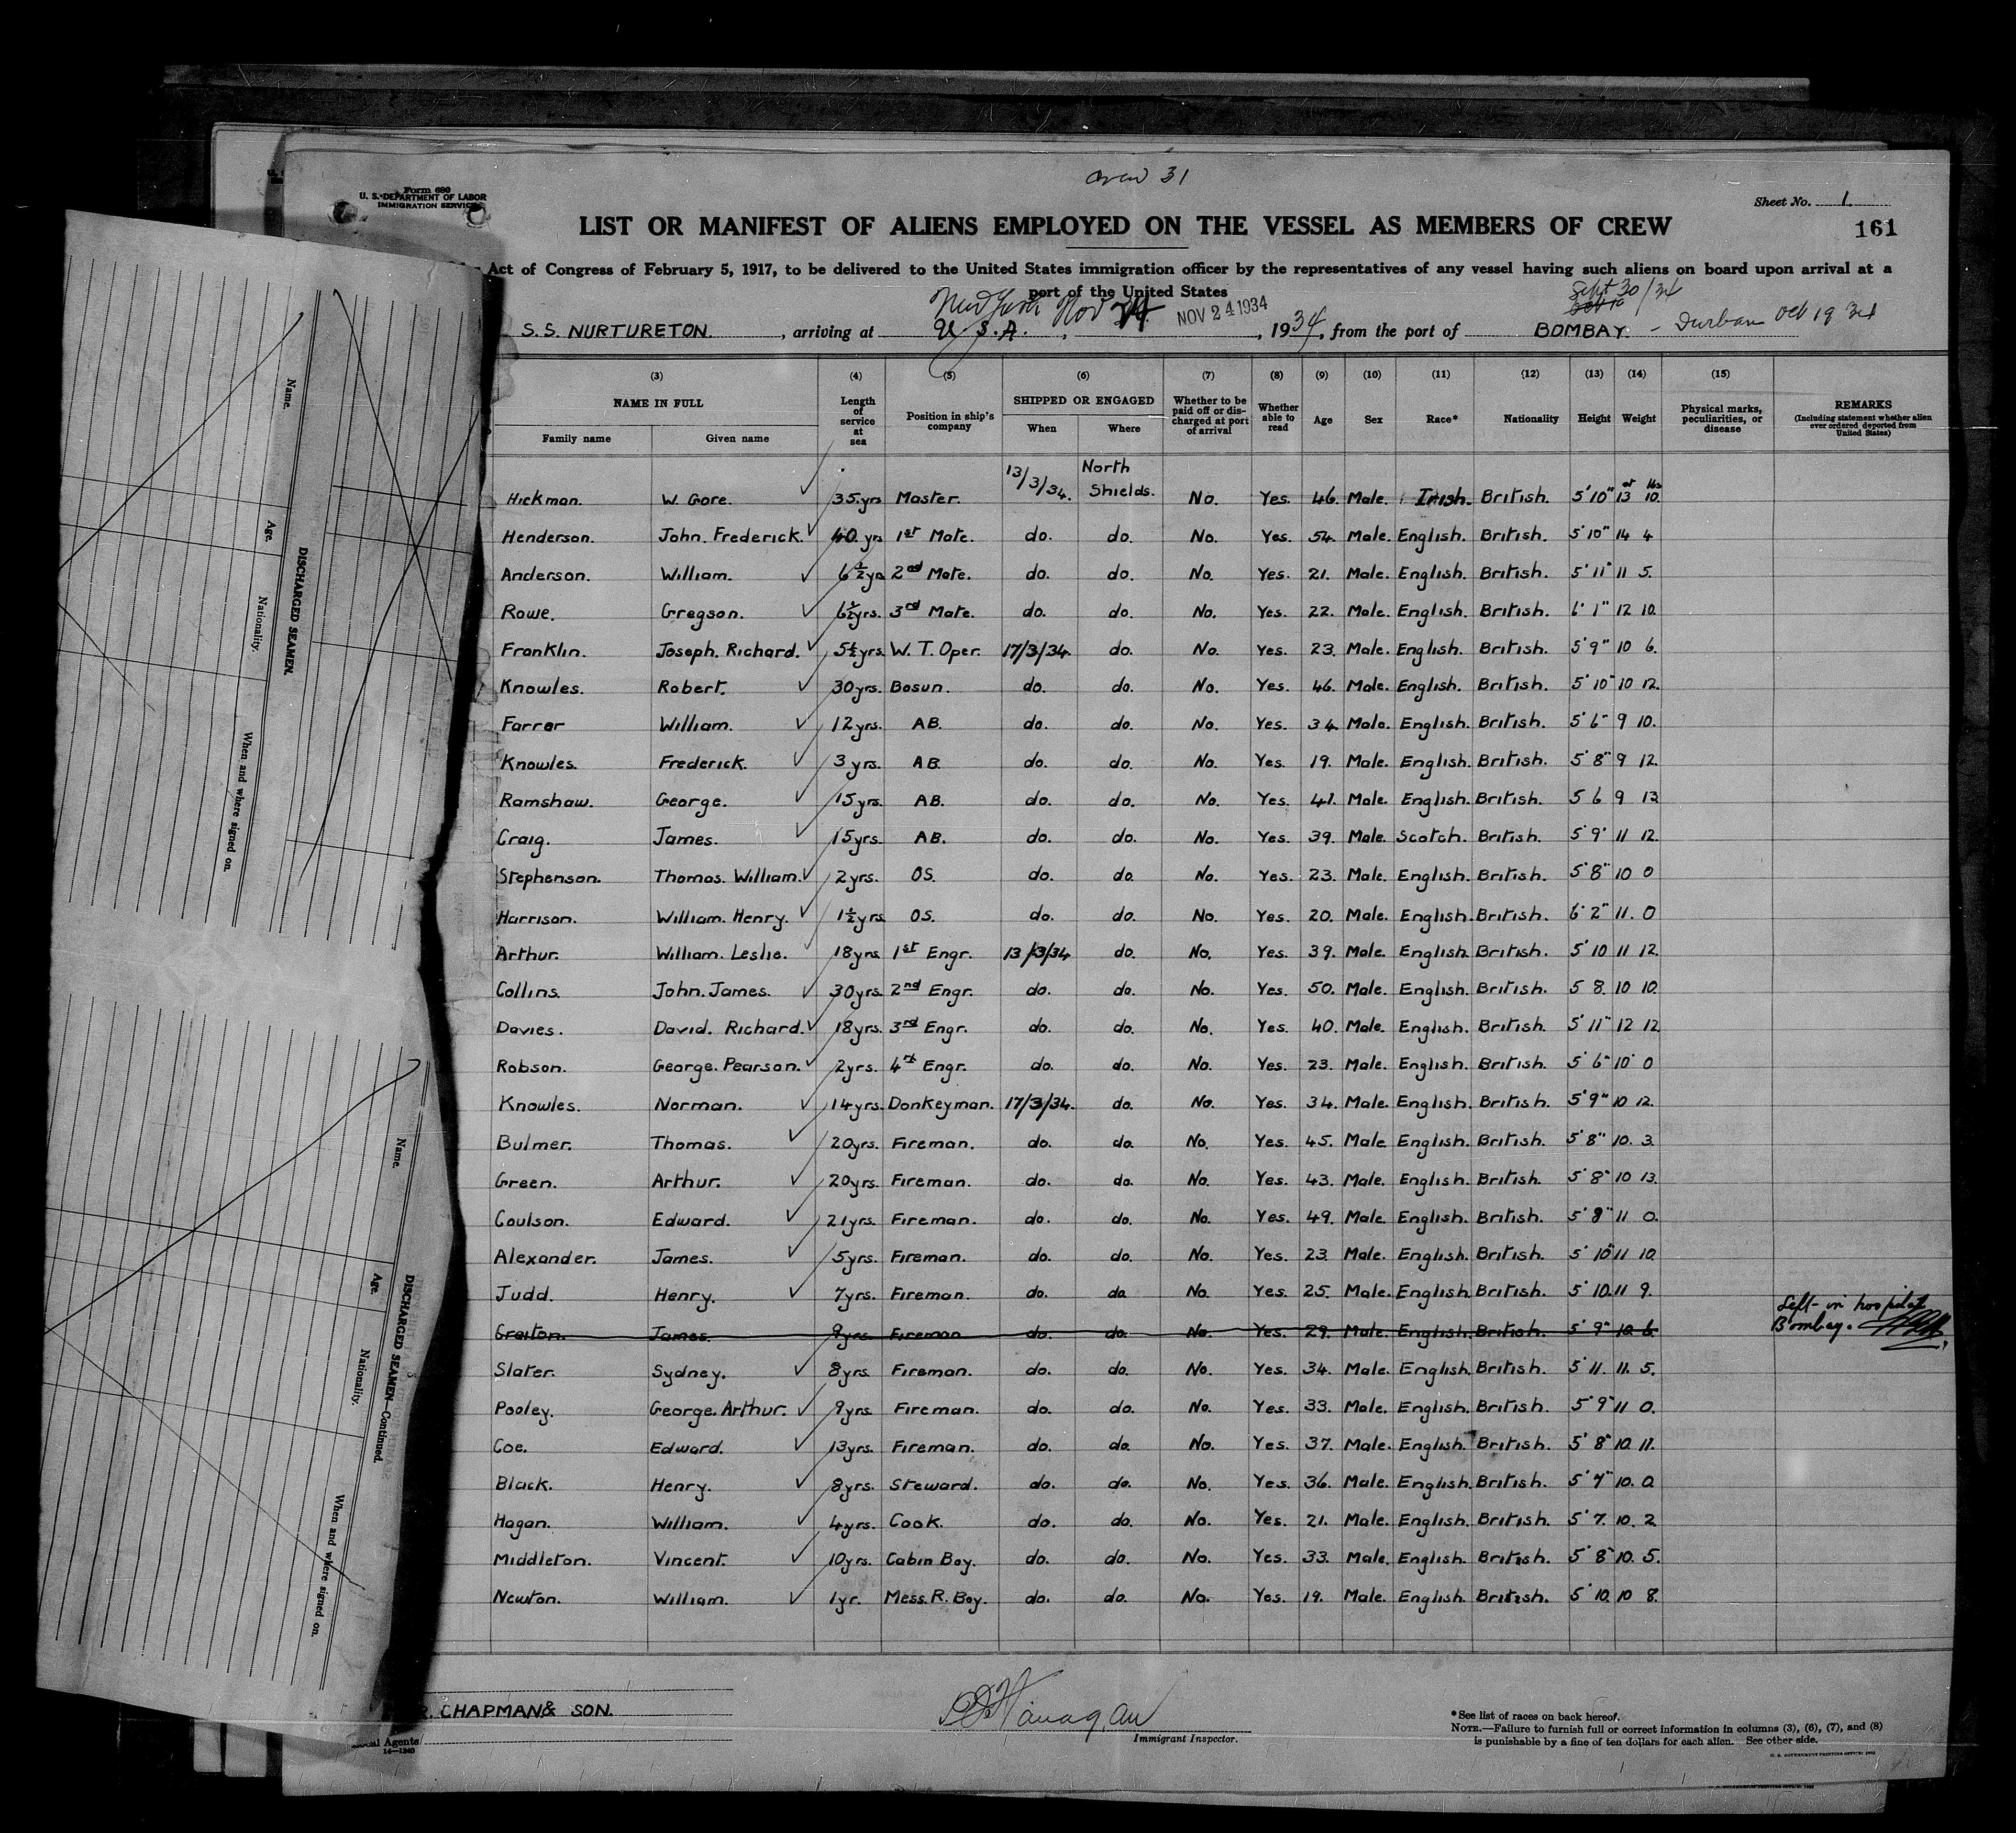 crew 31
Form 680
U. S. DEPARTMENT OF LABOR
IMMIGRATION SERVICE
Sheet No. 1.
161
LIST OR MANIFEST OF ALIENS EMPLOYED ON THE VESSEL AS MEMBERS OF CREW
Act of Congress of February 5, 1917, to be delivered to the United States immigration officer by the representatives of any vessel having such aliens on board upon arrival at a
port of the United States
Sept 30/34
New York Nov 24 NOV 24 1934
S.S. NURTURETON. , arriving at U.S.A. , , 1934, from the port of BOMBAY. - Durban Oct 19 34
(3) (4) (5) (6) (7) (8) (9) (10) (11) (12) (13) (14) (15)
NAME IN FULL Length of service at sea Position in ship's company SHIPPED OR ENGAGED Whether to be paid off or discharged at port of arrival Whether able to read Age Sex Race* Nationality Height Weight Physical marks, peculiarities, or disease REMARKS (Including statement whether alien ever ordered deported from United States)
Family name Given name When Where
st lbs
Hickman. W. Gore. 35 yrs Master. 13/3/34. North Shields. No. Yes. 46. Male. Irish. British. 5'10" 13 10.
Henderson. John. Frederick. 40. yrs 1st Mate. do. do. No. Yes. 54. Male. English. British. 5'10" 14 4
Anderson. William. 6½ yrs 2nd Mate. do. do. No. Yes. 21. Male. English. British. 5'11" 11 5.
Rowe. Gregson. 6½yrs. 3rd Mate. do. do. No. Yes. 22. Male. English. British. 6' 1" 12 10.
Franklin. Joseph. Richard. 5½yrs. W. T. Oper. 17/3/34. do. No. Yes. 23. Male. English. British. 5'9" 10 6.
Knowles. Robert. 30yrs. Bosun. do. do. No. Yes. 46. Male. English. British. 5'10" 10 12.
Farrar William. 12yrs. AB. do. do. No. Yes. 34. Male. English. British. 5'6" 9 10.
Knowles. Frederick. 3 yrs. AB. do. do. No. Yes. 19. Male. English. British. 5'8" 9 12.
Ramshaw. George. 15yrs. AB. do. do. No. Yes. 41. Male. English. British. 5 6 9 13
Craig. James. 15yrs. AB. do. do. No. Yes. 39. Male. Scotch. British. 5'9' 11 12.
Stephenson. Thomas. William. 2yrs. OS. do. do. No. Yes. 23. Male. English. British. 5'8" 10 0
Harrison. William. Henry. 1½yrs OS. do. do. No. Yes. 20. Male. English. British. 6'2" 11. 0
Arthur. William. Leslie. 18yrs 1st Engr. 13/3/34 do. No. Yes. 39. Male. English. British. 5'10 11 12.
Collins. John. James. 30yrs. 2nd Engr. do. do. No. Yes. 50. Male. English. British. 5 8. 10 10.
Davies. David. Richard. 18yrs. 3rd Engr. do. do. No. Yes. 40. Male. English. British. 5'11" 12 12
Robson. George. Pearson. 2yrs. 4th Engr. do. do. No. Yes. 23. Male. English. British. 5'6" 10 0
Knowles. Norman. 14yrs. Donkeyman. 17/3/34. do. No. Yes. 34. Male. English. British. 5'9" 10 12.
Bulmer. Thomas. 20yrs. Fireman. do. do. No. Yes. 45. Male English. British. 5'8" 10. 3.
Green. Arthur. 20yrs. Fireman. do. do. No. Yes. 43. Male. English. British. 5'8" 10 13.
Coulson. Edward. 21yrs. Fireman. do. do. No. Yes. 49. Male English. British. 5'8" 11 0.
Alexander. James. 5yrs. Fireman. do. do. No. Yes. 23 Male. English. British. 5'10" 11 10.
Judd. Henry. 7yrs. Fireman. do. do No. Yes. 25. Male. English. British. 5'10. 11 9.
Graiton. James. 9yrs. Fireman do. do. No. Yes. 29. Male. English. British. 5'9" 10. 6. Left in hospital Bombay.
Slater. Sydney. 8yrs Fireman. do. do. No. Yes. 34. Male. English. British. 5'11. 11. 5.
Pooley. George. Arthur. 9yrs. Fireman. do. do. No. Yes. 33. Male. English. British. 5'9" 11 0.
Coe. Edward. 13yrs. Fireman. do. do. No. Yes. 37. Male. English. British. 5'8" 10. 11.
Black. Henry. 8yrs. Steward. do. do. No. Yes. 36. Male. English. British. 5'7" 10. 0
Hagan. William. 4yrs. Cook. do. do. No. Yes. 21. Male. English. British. 5'7. 10. 2
Middleton. Vincent. 10yrs. Cabin Boy. do. do. No. Yes. 33. Male. English. British. 5'8" 10. 5.
Newton. William. 1yr. Mess. R. Boy. do. do. No. Yes. 19. Male. English. British. 5'10. 10 8.
R. CHAPMAN & SON.
Local Agents
14—1240
Immigrant Inspector.
*See list of races on back hereof.
NOTE.—Failure to furnish full or correct information in columns (3), (6), (7), and (8)
is punishable by a fine of ten dollars for each alien. See other side.
U. S. GOVERNMENT PRINTING OFFICE: 1932
DISCHARGED SEAMEN.
Name. Age. Nationality. When and where signed on.
DISCHARGED SEAMEN—Continued.
Name. Age. Nationality. When and where signed on.